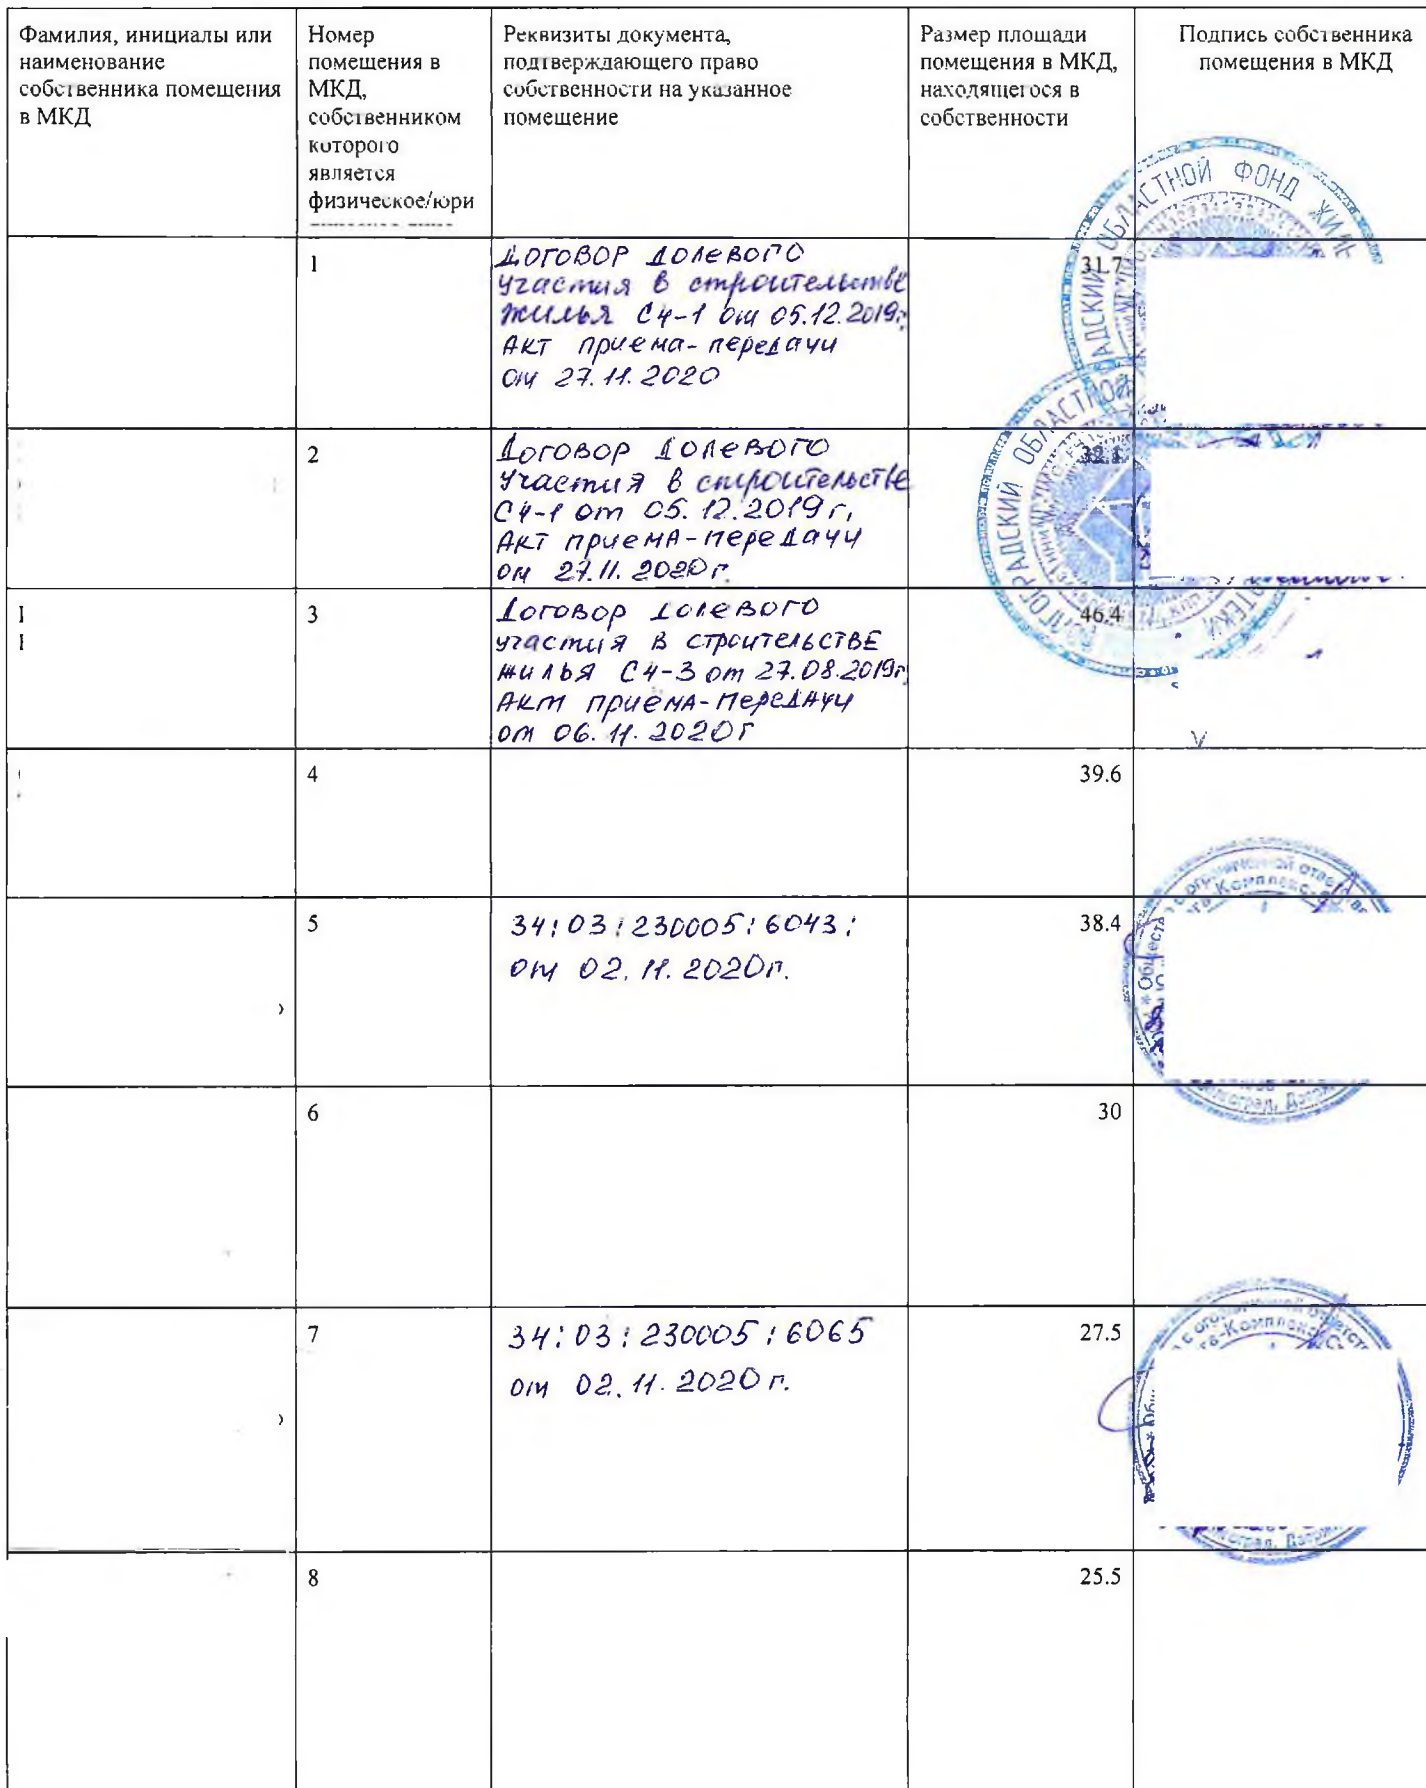 Фамилия, инициалы или
наименование
собственника помещения
в МКД
Номер
помещения в
МКД,
собственником
которого
является
физическое/юри
Реквизиты документа,
подтверждающего право
собственности на указанное
помещение
Размер площади
помещения в МКД,
находящегося в
собственности
Подпись собственника
помещения в МКД
1
Договор долевого
участия в строительстве
жилья С4-1 от 05.12.2019г.
Акт приема-передачи
от 27.11.2020
31.7
2
Договор долевого
участия в строительстве
С4-1 от 05.12.2019г,
Акт приема-передачи
от 27.11.2020г.
32.1
3
Договор долевого
участия в строительстве
жилья С4-3 от 27.08.2019г,
Акт приема-передачи
от 06.11.2020г
46.4
4
39.6
5
34:03:230005:6043;
от 02.11.2020г.
38.4
6
30
7
34:03:230005:6065
от 02.11.2020г.
27.5
8
25.5
ОБЛАСТНОЙ ФОНД
ВОЛГОГРАДСКИЙ ОБЛАСТНОЙ